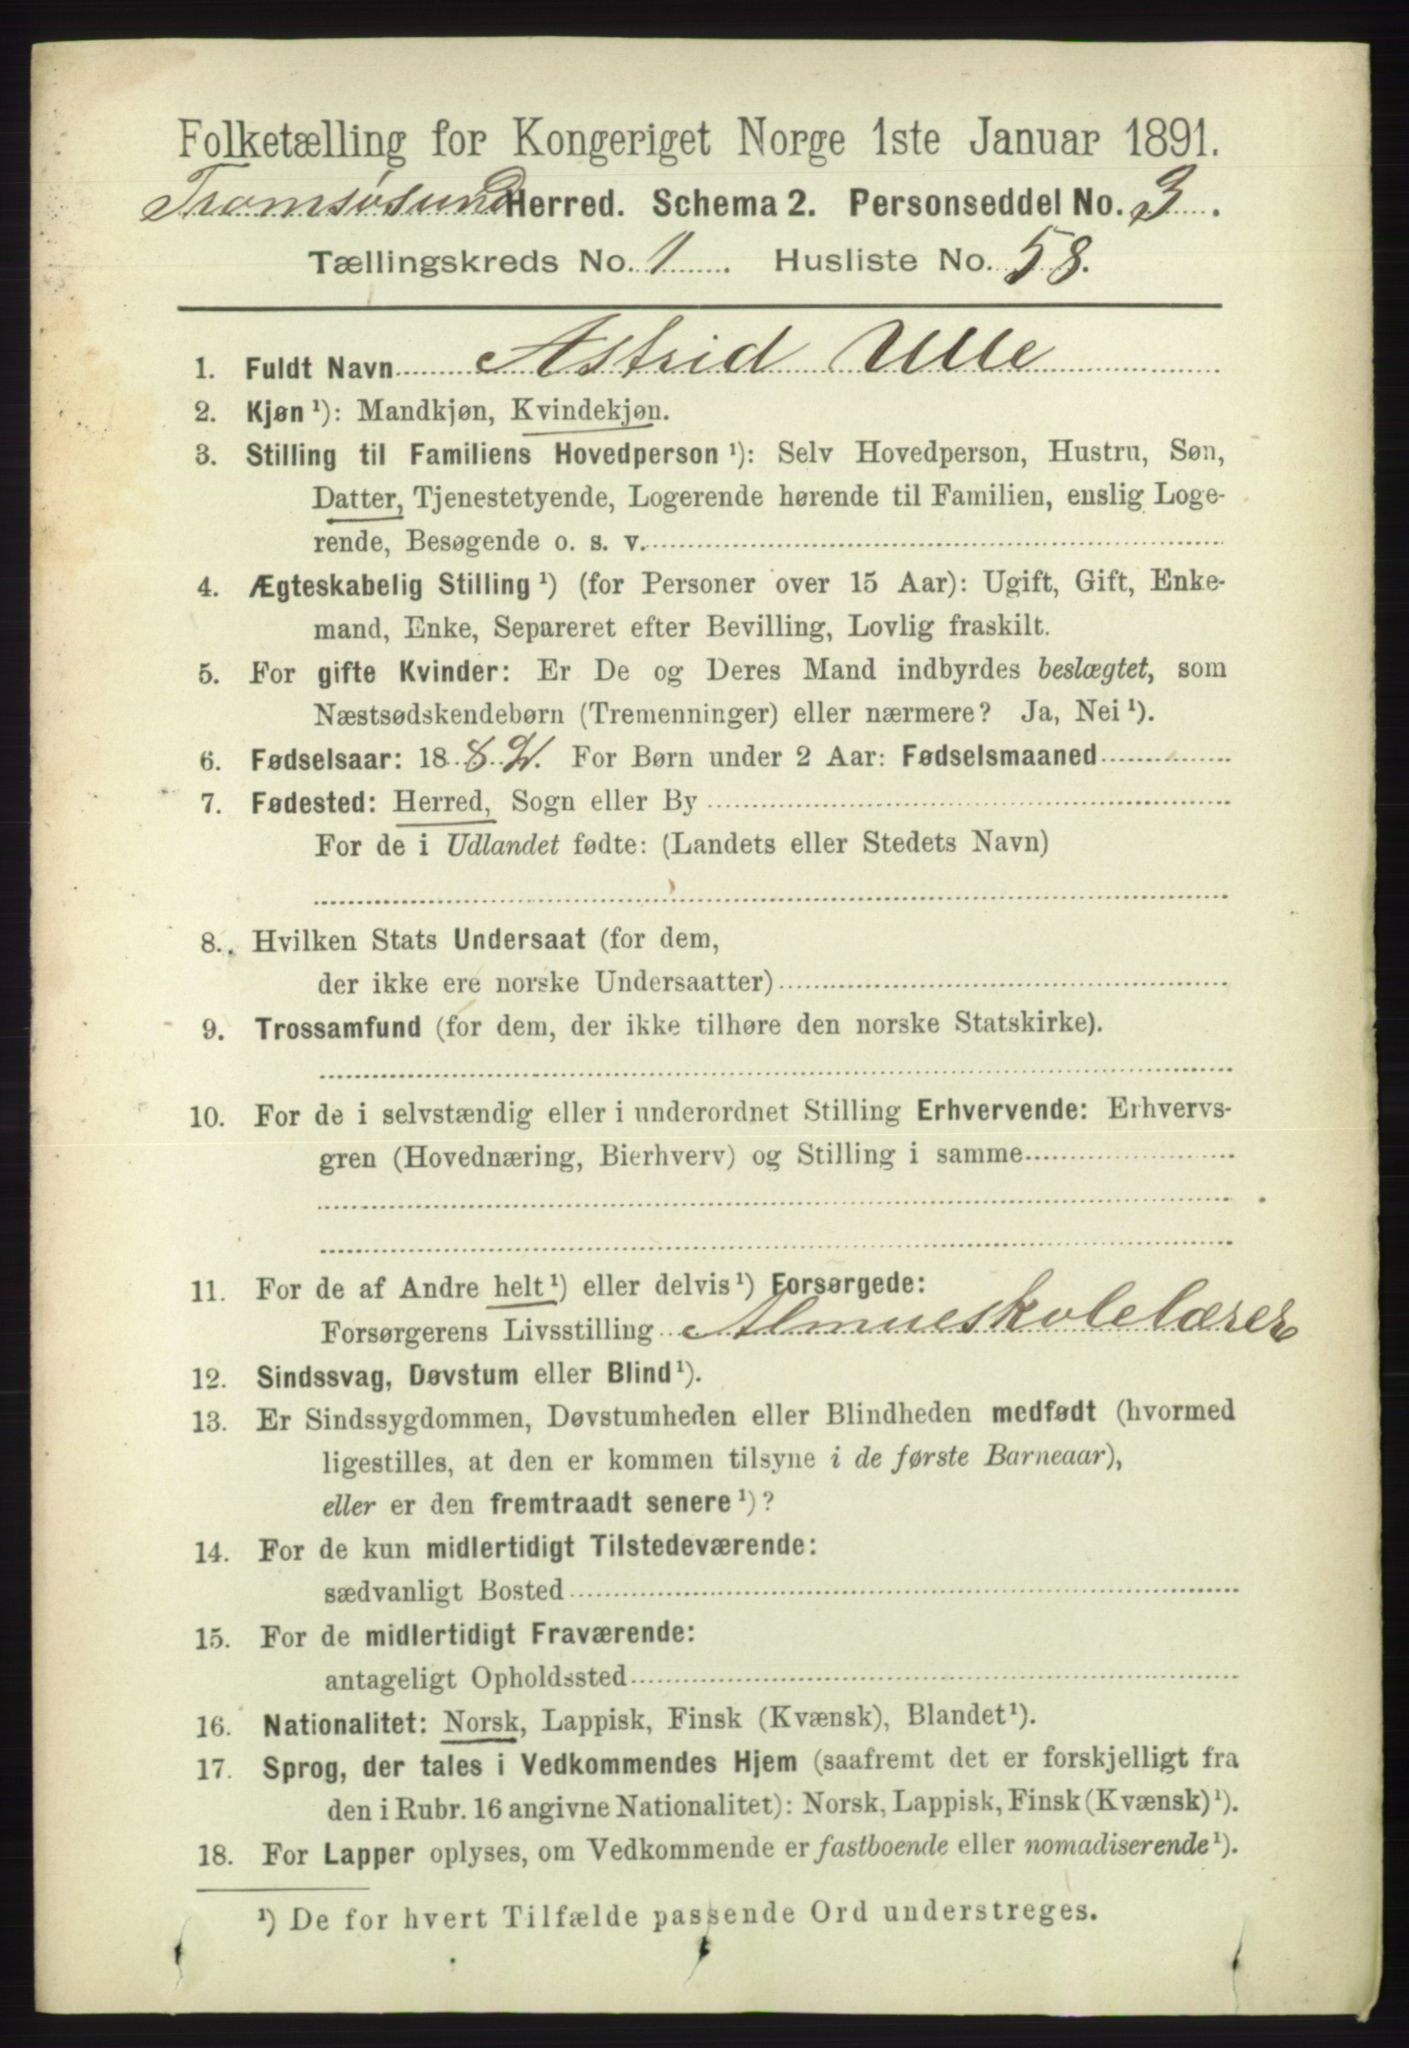 Folketælling for Kongeriget Norge 1ste Januar 1891.
Tromsøsund Herred. Schema 2. Personseddel No. 3.
Tællingskreds No. 1. Husliste No. 58.
1. Fuldt Navn Astrid Ulle
2. Kjøn ¹): Mandkjøn, Kvindekjøn.
3. Stilling til Familiens Hovedperson ¹): Selv Hovedperson, Hustru, Søn,
Datter, Tjenestetyende, Logerende hørende til Familien, enslig Loge-
rende, Besøgende o. s. v.
4. Ægteskabelig Stilling ¹) (for Personer over 15 Aar): Ugift, Gift, Enke-
mand, Enke, Separeret efter Bevilling, Lovlig fraskilt.
5. For gifte Kvinder: Er De og Deres Mand indbyrdes beslægtet, som
Næstsødskendebørn (Tremenninger) eller nærmere? Ja, Nei ¹).
6. Fødselsaar: 1882. For Børn under 2 Aar: Fødselsmaaned
7. Fødested: Herred, Sogn eller By
For de i Udlandet fødte: (Landets eller Stedets Navn)
8. Hvilken Stats Undersaat (for dem,
der ikke ere norske Undersaatter)
9. Trossamfund (for dem, der ikke tilhøre den norske Statskirke).
10. For de i selvstændig eller i underordnet Stilling Erhvervende: Erhvervs-
gren (Hovednæring, Bierhverv) og Stilling i samme
11. For de af Andre helt ¹) eller delvis ¹) Forsørgede:
Forsørgerens Livsstilling Almueskolelærer
12. Sindssvag, Døvstum eller Blind ¹).
13. Er Sindssygdommen, Døvstumheden eller Blindheden medfødt (hvormed
ligestilles, at den er kommen tilsyne i de første Barneaar),
eller er den fremtraadt senere ¹)?
14. For de kun midlertidigt Tilstedeværende:
sædvanligt Bosted
15. For de midlertidigt Fraværende:
antageligt Opholdssted
16. Nationalitet: Norsk, Lappisk, Finsk (Kvænsk), Blandet ¹).
17. Sprog, der tales i Vedkommendes Hjem (saafremt det er forskjelligt fra
den i Rubr. 16 angivne Nationalitet): Norsk, Lappisk, Finsk (Kvænsk) ¹).
18. For Lapper oplyses, om Vedkommende er fastboende eller nomadiserende ¹).
¹) De for hvert Tilfælde passende Ord understreges.